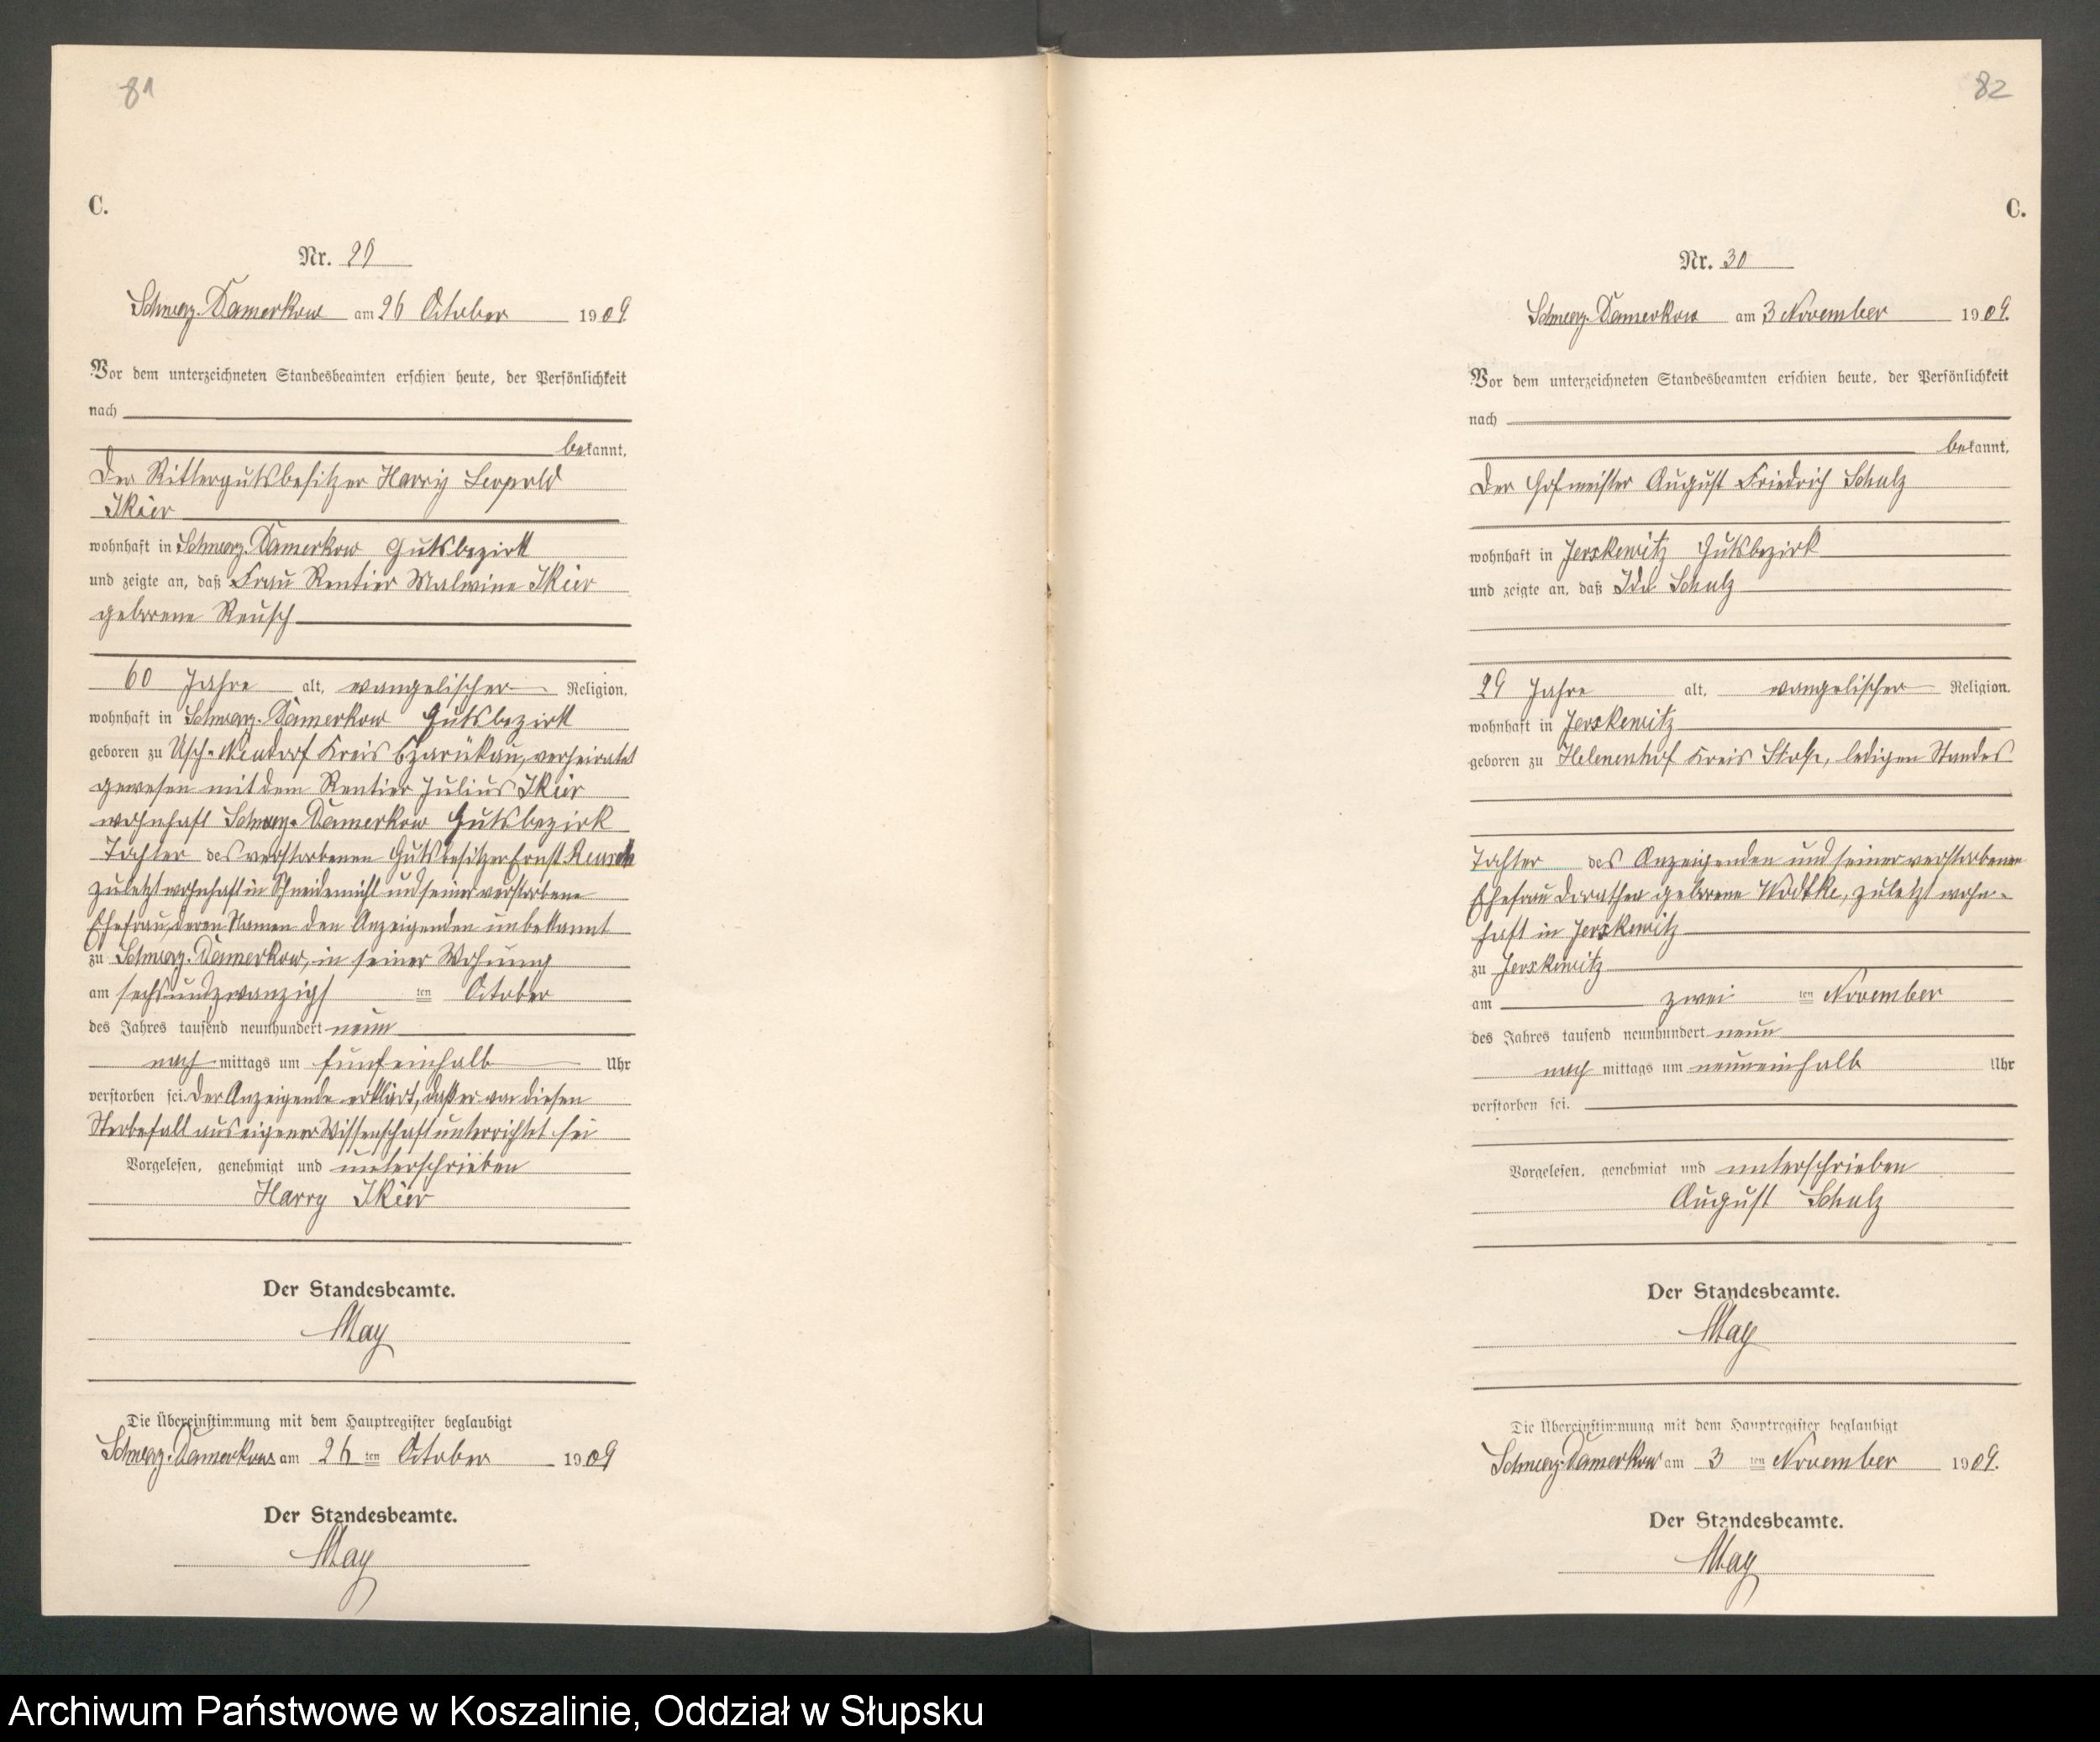 81
C.
Nr. 29
Schwarz-Damerkow am 26 October 1909.
Vor dem unterzeichneten Standesbeamten erschien heute, der Persönlichkeit
nach
bekannt,
der Rittergutsbesitzer Harry Leopold
Ikier
wohnhaft in Schwarz-Damerkow Gutsbezirk
und zeigte an, daß Frau Rentier Malwine Ikier
geborene Reusch
60 Jahre alt, evangelischer Religion,
wohnhaft in Schwarz-Damerkow Gutsbezirk
geboren zu Usch-Neudorf Kreis Czarnikau, verheiratet
gewesen mit dem Rentier Julius Ikier
wohnhaft Schwarz-Damerkow Gutsbezirk
Tochter des verstorbenen Gutsbesitzer Ernst Reusch
zuletzt wohnhaft in Schneidemühl und seiner verstorbene
Ehefrau, deren Namen den Anzeigenden unbekannt
zu Schwarz-Damerkow, in seiner Wohnung
am sechsundzwanzigsten October
des Jahres tausend neunhundert neun
nach mittags um fünfeinhalb Uhr
verstorben sei. Der Anzeigende erklärt, daß er von diesen
Sterbefall aus eigener Wissenschaft unterrichtet sei
Vorgelesen, genehmigt und unterschrieben
Harry Ikier
Der Standesbeamte.
May
Die Übereinstimmung mit dem Hauptregister beglaubigt
Schwarz-Damerkow am 26 ten October 1909
Der Standesbeamte.
May
82
C.
Nr. 30
Schwarz-Damerkow am 3 November 1909.
Vor dem unterzeichneten Standesbeamten erschien heute, der Persönlichkeit
nach
bekannt,
der Hofmeister August Friedrich Schulz
wohnhaft in Jerskewitz Gutsbezirk
und zeigte an, daß Ida Schulz
29 Jahre alt, evangelischer Religion,
wohnhaft in Jerskewitz
geboren zu Helenenhof Kreis Stolp, ledigen Standes
Tochter des Anzeigenden und seiner verstorbenen
Ehefrau Dorathea geborene Wodtke, zuletzt wohn-
haft in Jerskewitz
zu Jerskewitz
am zwei ten November
des Jahres tausend neunhundert neun
nach mittags um neuneinhalb Uhr
verstorben sei.
Vorgelesen, genehmigt und unterschrieben
August Schulz
Der Standesbeamte.
May
Die Übereinstimmung mit dem Hauptregister beglaubigt
Schwarz-Damerkow am 3 ten November 1909.
Der Standesbeamte.
May
Archiwum Państwowe w Koszalinie, Oddział w Słupsku